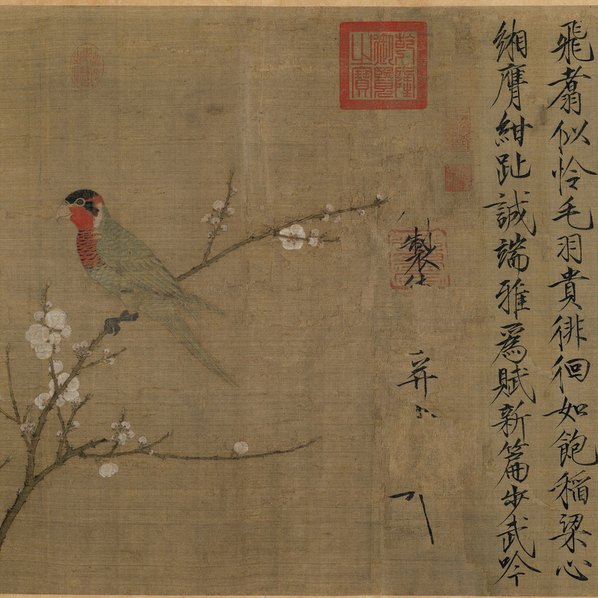 飛翥似怜毛羽貴徘徊如飽稻粱心
緗膺紺趾誠端雅爲賦新篇步武吟
製
乾隆
御覽
之寶